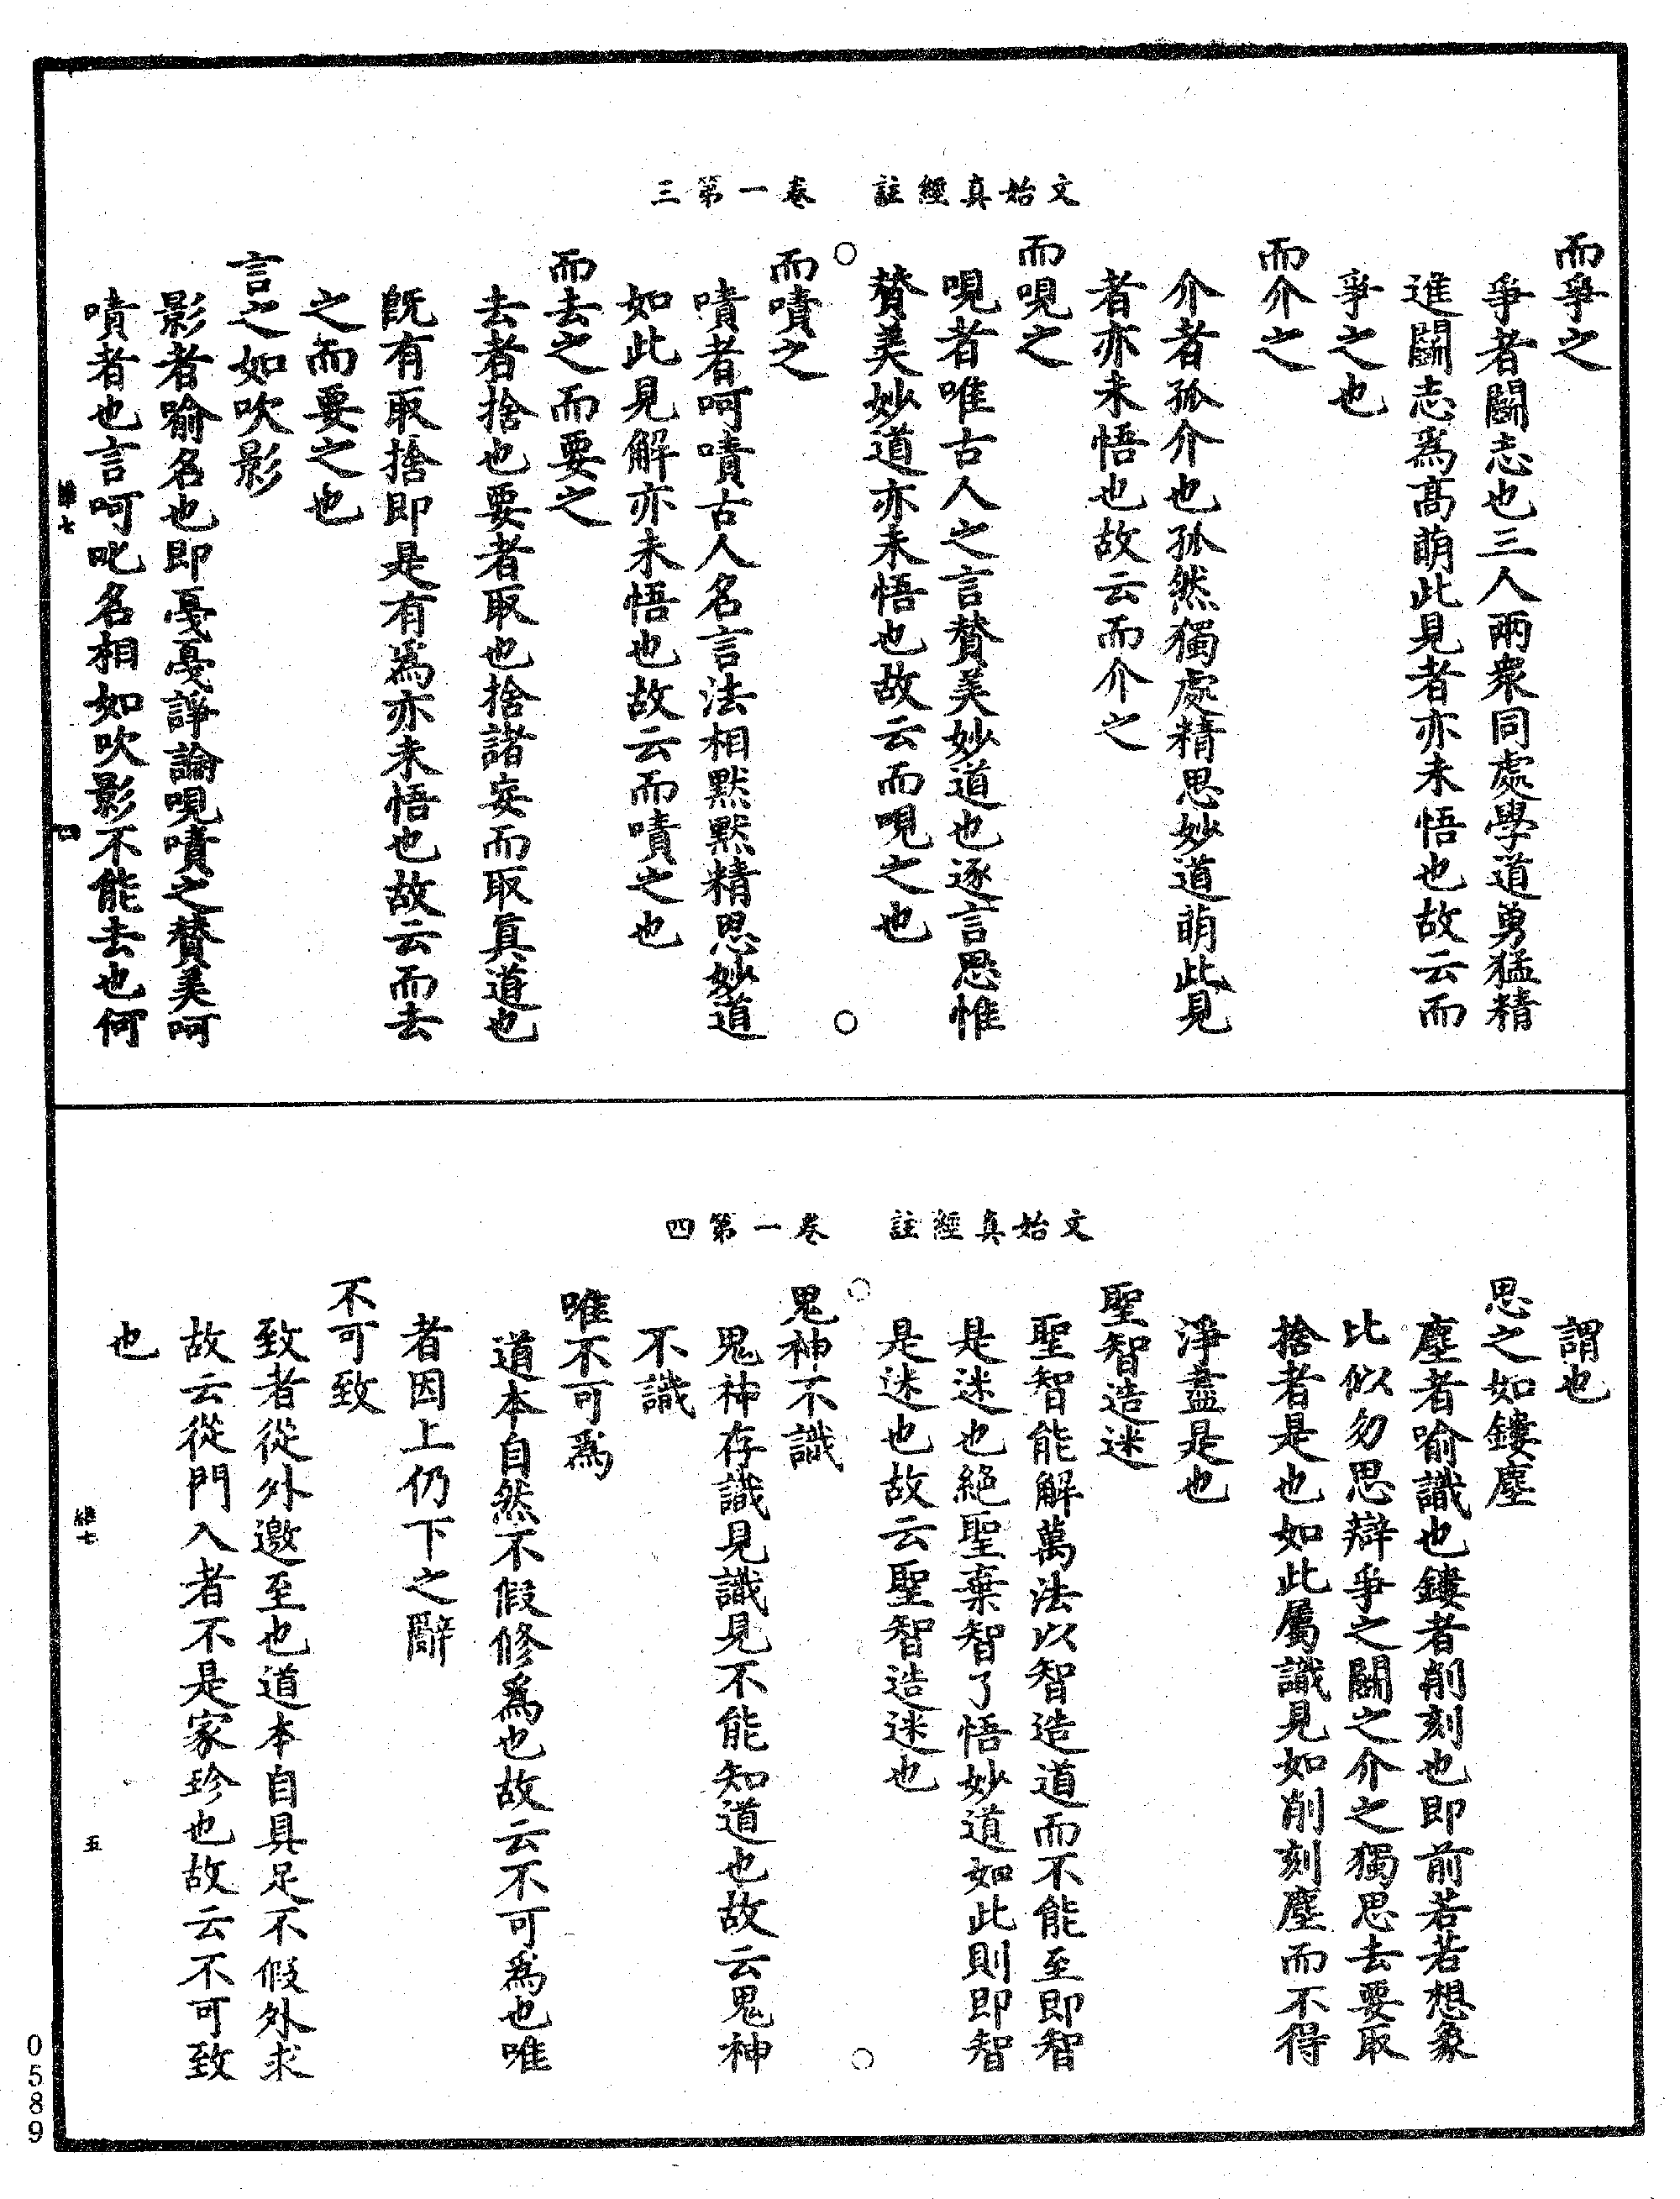 文始真經註　卷一第三
而爭之
爭者鬭志也三人兩衆同處學道勇猛精
進鬭志爲高萌此見者亦未悟也故云而
爭之也
而介之
介者孤介也孤然獨處精思妙道萌此見
者亦未悟也故云而介之
而哯之
哯者唯古人之言賛美妙道也逐言思惟
賛美妙道亦未悟也故云而哯之也
而嘖之
嘖者呵嘖古人名言法相默默精思妙道
如此見解亦未悟也故云而嘖之也
而去之而要之
去者捨也要者取也捨諸妄而取真道也
旣有取捨即是有爲亦未悟也故云而去
之而要之也
言之如吹影
影者喻名也即戞戞諍論哯嘖之賛美呵
嘖者也言呵叱名相如吹影不能去也何
維七
四
文始真經註　卷一第四
謂也
思之如鏤塵
塵者喻識也鏤者削刻也即前若若想象
比似勿思辯爭之鬭之介之獨思去要取
捨者是也如此屬識見如削刻塵而不得
淨盡是也
聖智造迷
聖智能解萬法以智造道而不能至即智
是迷也絕聖棄智了悟妙道如此則即智
是迷也故云聖智造迷也
鬼神不識
鬼神存識見識見不能知道也故云鬼神
不識
唯不可爲
道本自然不假修爲也故云不可爲也唯
者因上仍下之辭
不可致
致者從外邀至也道本自具足不假外求
故云從門入者不是家珍也故云不可致
也
維七
五
0589